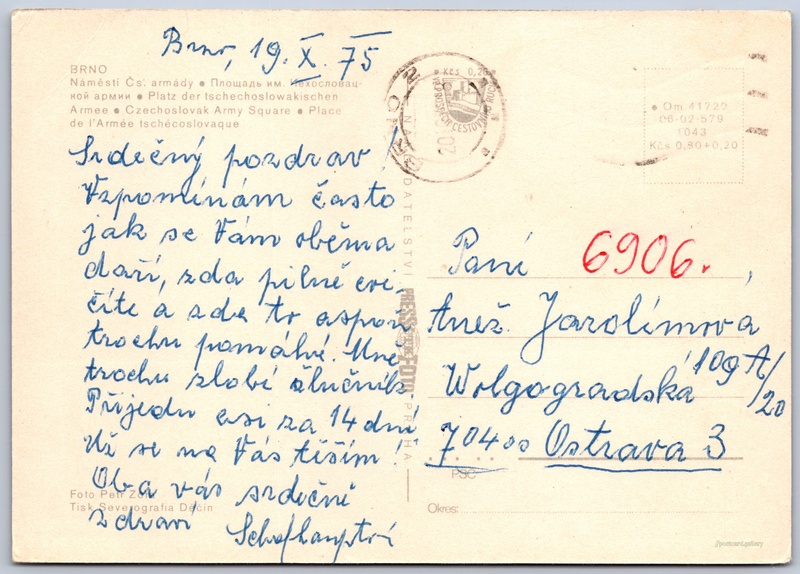 Brno, 19. X. 75
BRNO
Náměstí Čs. armády • Площадь им. Чехословац-
кой армии • Platz der tschechoslowakischen
Armee • Czechoslovak Army Square • Place
de l'Armée tschécoslovaque
Srdečný pozdrav!
Vzpomínám často
jak se Vám oběma
daří, zda pilně cvi
číte a zda to aspoň
trochu pomáhá. Mne
trochu zlobí žlučník.
Přijedu asi za 14 dní
Už se na Vás těším!
Oba vás srdečně
zdraví Schafhauptovi
Foto Petr
Tisk Severografia Děčín
NAKLADATELSTVÍ PRESSFOTO PRAHA
BRNO 2
Kčs 0,20
• Om. 41729
06-02-579
1043
Kčs 0,80+0,20
Paní 6906.
Anež. Jarolímová
Wolgogradská 109A/20
704 00 Ostrava 3
PSČ
Okres: